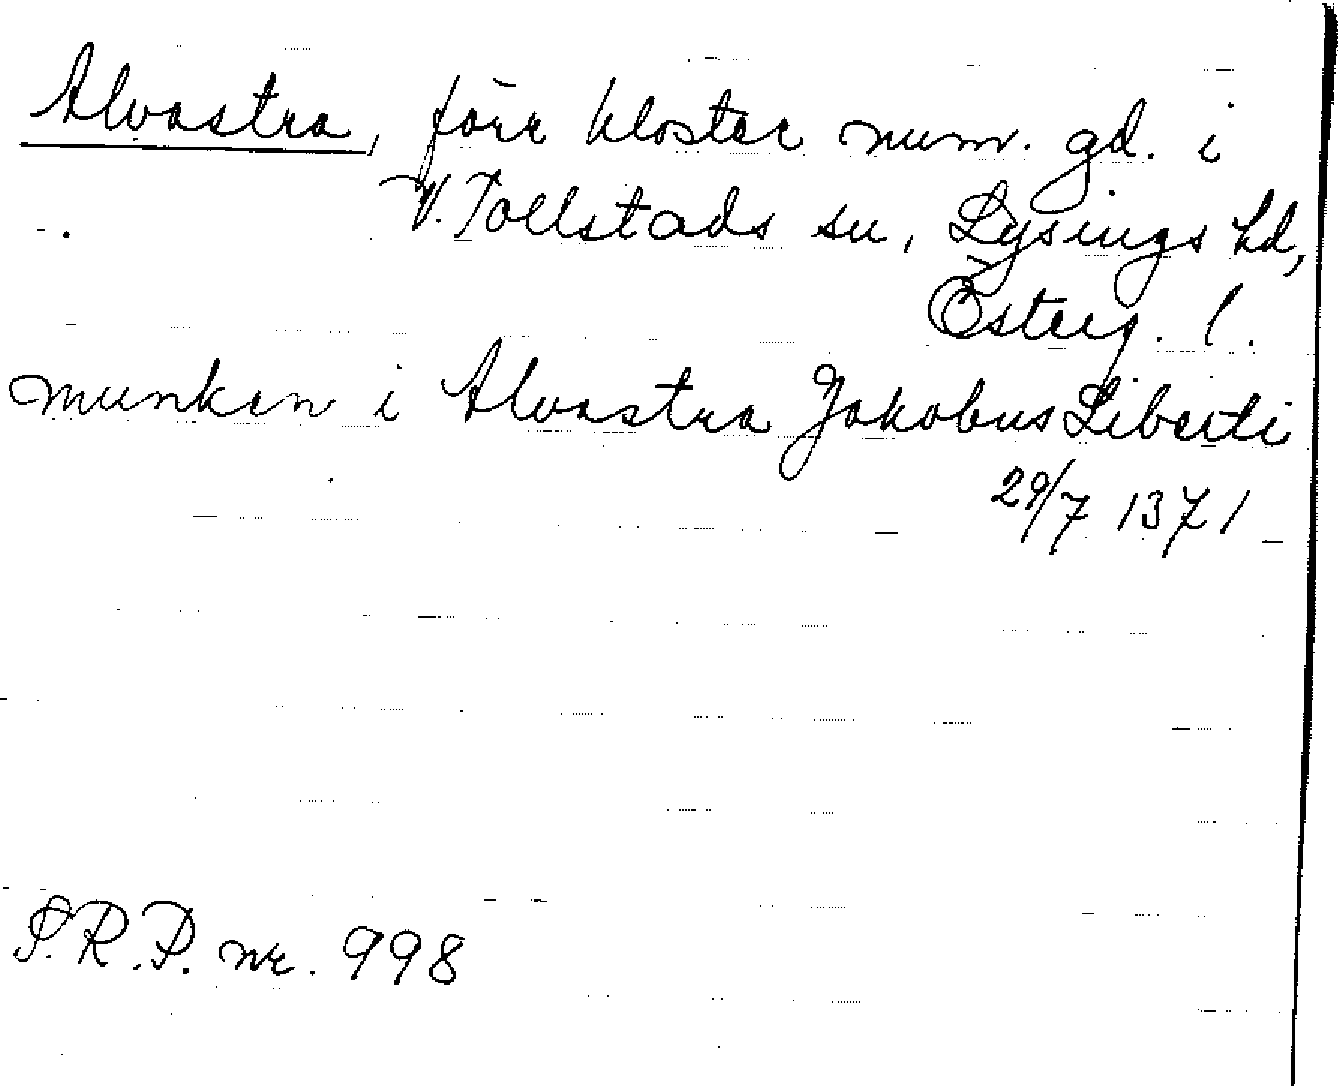 Alvastra, förr kloster num. gd. i
V. Tollstads sn, Lysings hd,
Österg. l.
munken i Alvastra Jakobus Liberti
29/7 1371
S.R.P. nr. 998